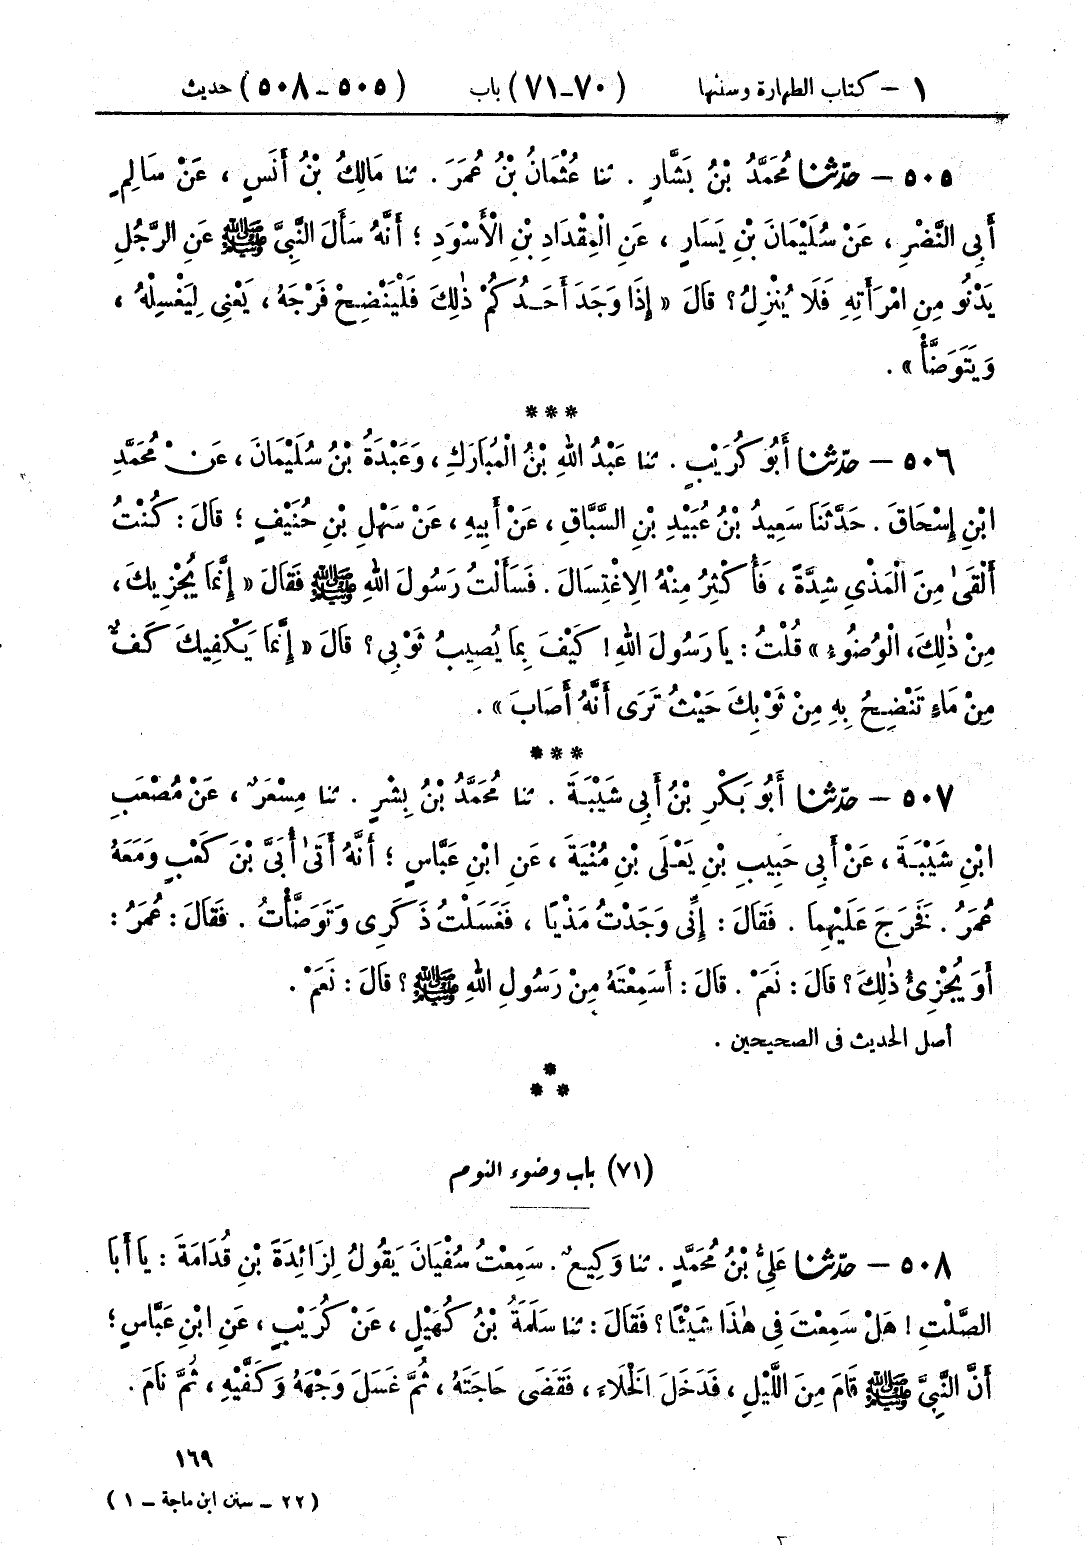 ١ - كتاب الطهارة وسننها (٧٠-٧١) باب (٥٠٥ - ٥٠٨) حديث
٥٠٥ - حدّثنا مُحَمَّدُ بْنُ بَشَّارٍ . ثنا عُثْمَانُ بْنُ عُمَرَ . ثنا مَالِكُ بْنُ أَنَسٍ ، عَنْ سَالِمٍ
أَبِي النَّضْرِ ، عَنْ سُلَيْمَانَ بْنِ يَسَارٍ ، عَنِ الْمِقْدَادِ بْنِ الْأَسْوَدِ ؛ أَنَّهُ سَأَلَ النَّبِيَّ ﷺ عَنِ الرَّجُلِ
يَدْنُو مِنِ امْرَأَتِهِ فَلَا يُنْزِلُ؟ قَالَ « إِذَا وَجَدَ أَحَدُكُمْ ذٰلِكَ فَلْيَنْضِحْ فَرْجَهُ ، يَعْنِي لِيَغْسِلْهُ ،
وَيَتَوَضَّأْ » .
***
٥٠٦ - حدّثنا أَبُو كُرَيْبٍ . ثنا عَبْدُ اللهِ بْنُ الْمُبَارَكِ ، وَعَبْدَةُ بْنُ سُلَيْمَانَ ، عَنْ مُحَمَّدِ
ابْنِ إِسْحَاقَ . حَدَّثَنَا سَعِيدُ بْنُ عُبَيْدِ بْنِ السَّبَّاقِ ، عَنْ أَبِيهِ ، عَنْ سَهْلِ بْنِ حُنَيْفٍ ؛ قَالَ : كُنْتُ
أَلْقَىٰ مِنَ الْمَذْيِ شِدَّةً ، فَأُكْثِرُ مِنْهُ الِاغْتِسَالَ . فَسَأَلْتُ رَسُولَ اللهِ ﷺ فَقَالَ « إِنَّمَا يُجْزِيكَ ،
مِنْ ذٰلِكَ، الْوُضُوءُ » قُلْتُ : يَا رَسُولَ اللهِ! كَيْفَ بِمَا يُصِيبُ ثَوْبِي؟ قَالَ « إِنَّمَا يَكْفِيكَ كَفٌّ
مِنْ مَاءٍ تَنْضِحُ بِهِ مِنْ ثَوْبِكَ حَيْثُ تَرَى أَنَّهُ أَصَابَ » .
***
٥٠٧ - حدّثنا أَبُو بَكْرِ بْنُ أَبِي شَيْبَةَ . ثنا مُحَمَّدُ بْنُ بِشْرٍ . ثنا مِسْعَرٌ ، عَنْ مُصْعَبِ
ابْنِ شَيْبَةَ ، عَنْ أَبِي حَبِيبِ بْنِ يَعْلَى بْنِ مُنْيَةَ ، عَنِ ابْنِ عَبَّاسٍ ؛ أَنَّهُ أَتَىٰ أُبَيَّ بْنَ كَعْبٍ وَمَعَهُ
عُمَرُ . فَخَرَجَ عَلَيْهِمَا . فَقَالَ : إِنِّي وَجَدْتُ مَذْيًا ، فَغَسَلْتُ ذَكَرِى وَتَوَضَّأْتُ . فَقَالَ : عُمَرُ :
أَوَ يُجْزِئُ ذٰلِكَ؟ قَالَ : نَعَمْ . قَالَ : أَسَمِعْتَهُ مِنْ رَسُولِ اللهِ ﷺ ؟ قَالَ : نَعَمْ .
أصل الحديث فى الصحيحين .
*
* *
(٧١) باب وضوء النوم
٥٠٨ - حدّثنا عَلِيُّ بْنُ مُحَمَّدٍ . ثنا وَكِيعٌ . سَمِعْتُ سُفْيَانَ يَقُولُ لِزَائِدَةَ بْنِ قُدَامَةَ : يَا أَبَا
الصَّلْتِ ! هَلْ سَمِعْتَ فِي هٰذَا شَيْئًا؟ فَقَالَ : ثنا سَلَمَةُ بْنُ كُهَيْلٍ ، عَنْ كُرَيْبٍ ، عَنِ ابْنِ عَبَّاسٍ ؛
أَنَّ النَّبِيَّ ﷺ قَامَ مِنَ اللَّيْلِ ، فَدَخَلَ الْخَلَاءَ ، فَقَضَى حَاجَتَهُ ، ثُمَّ غَسَلَ وَجْهَهُ وَكَفَّيْهِ ، ثُمَّ نَامَ .
١٦٩
(٢٢ - سنن ابن ماجة - ١)